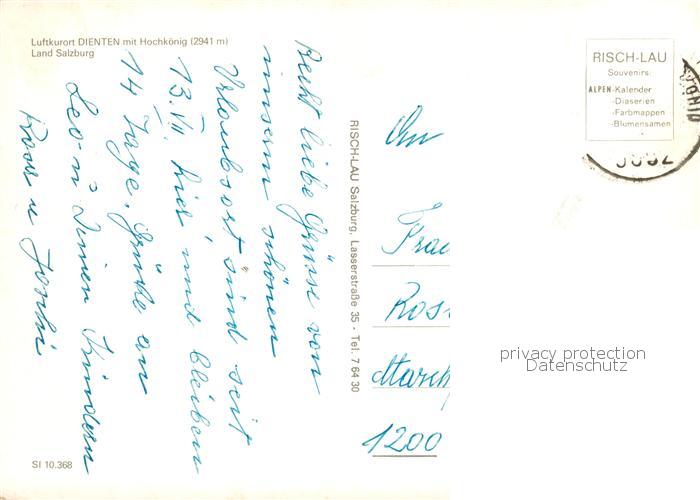 Luftkurort DIENTEN mit Hochkönig (2941 m)
Land Salzburg
Recht liebe Grüsse von
unserm schönen
Urlaubsort sind seit
13. VII. hier und bleiben
14 Tage. Grüße an
Leo u Deinen Kindern
u Joschi
SI 10.368
RISCH-LAU Salzburg, Lasserstraße 35 - Tel. 7 64 30
RISCH-LAU
Souvenirs:
ALPEN-Kalender
-Diaserien
-Farbmappen
-Blumensamen
An
Frau
1200
privacy protection
Datenschutz